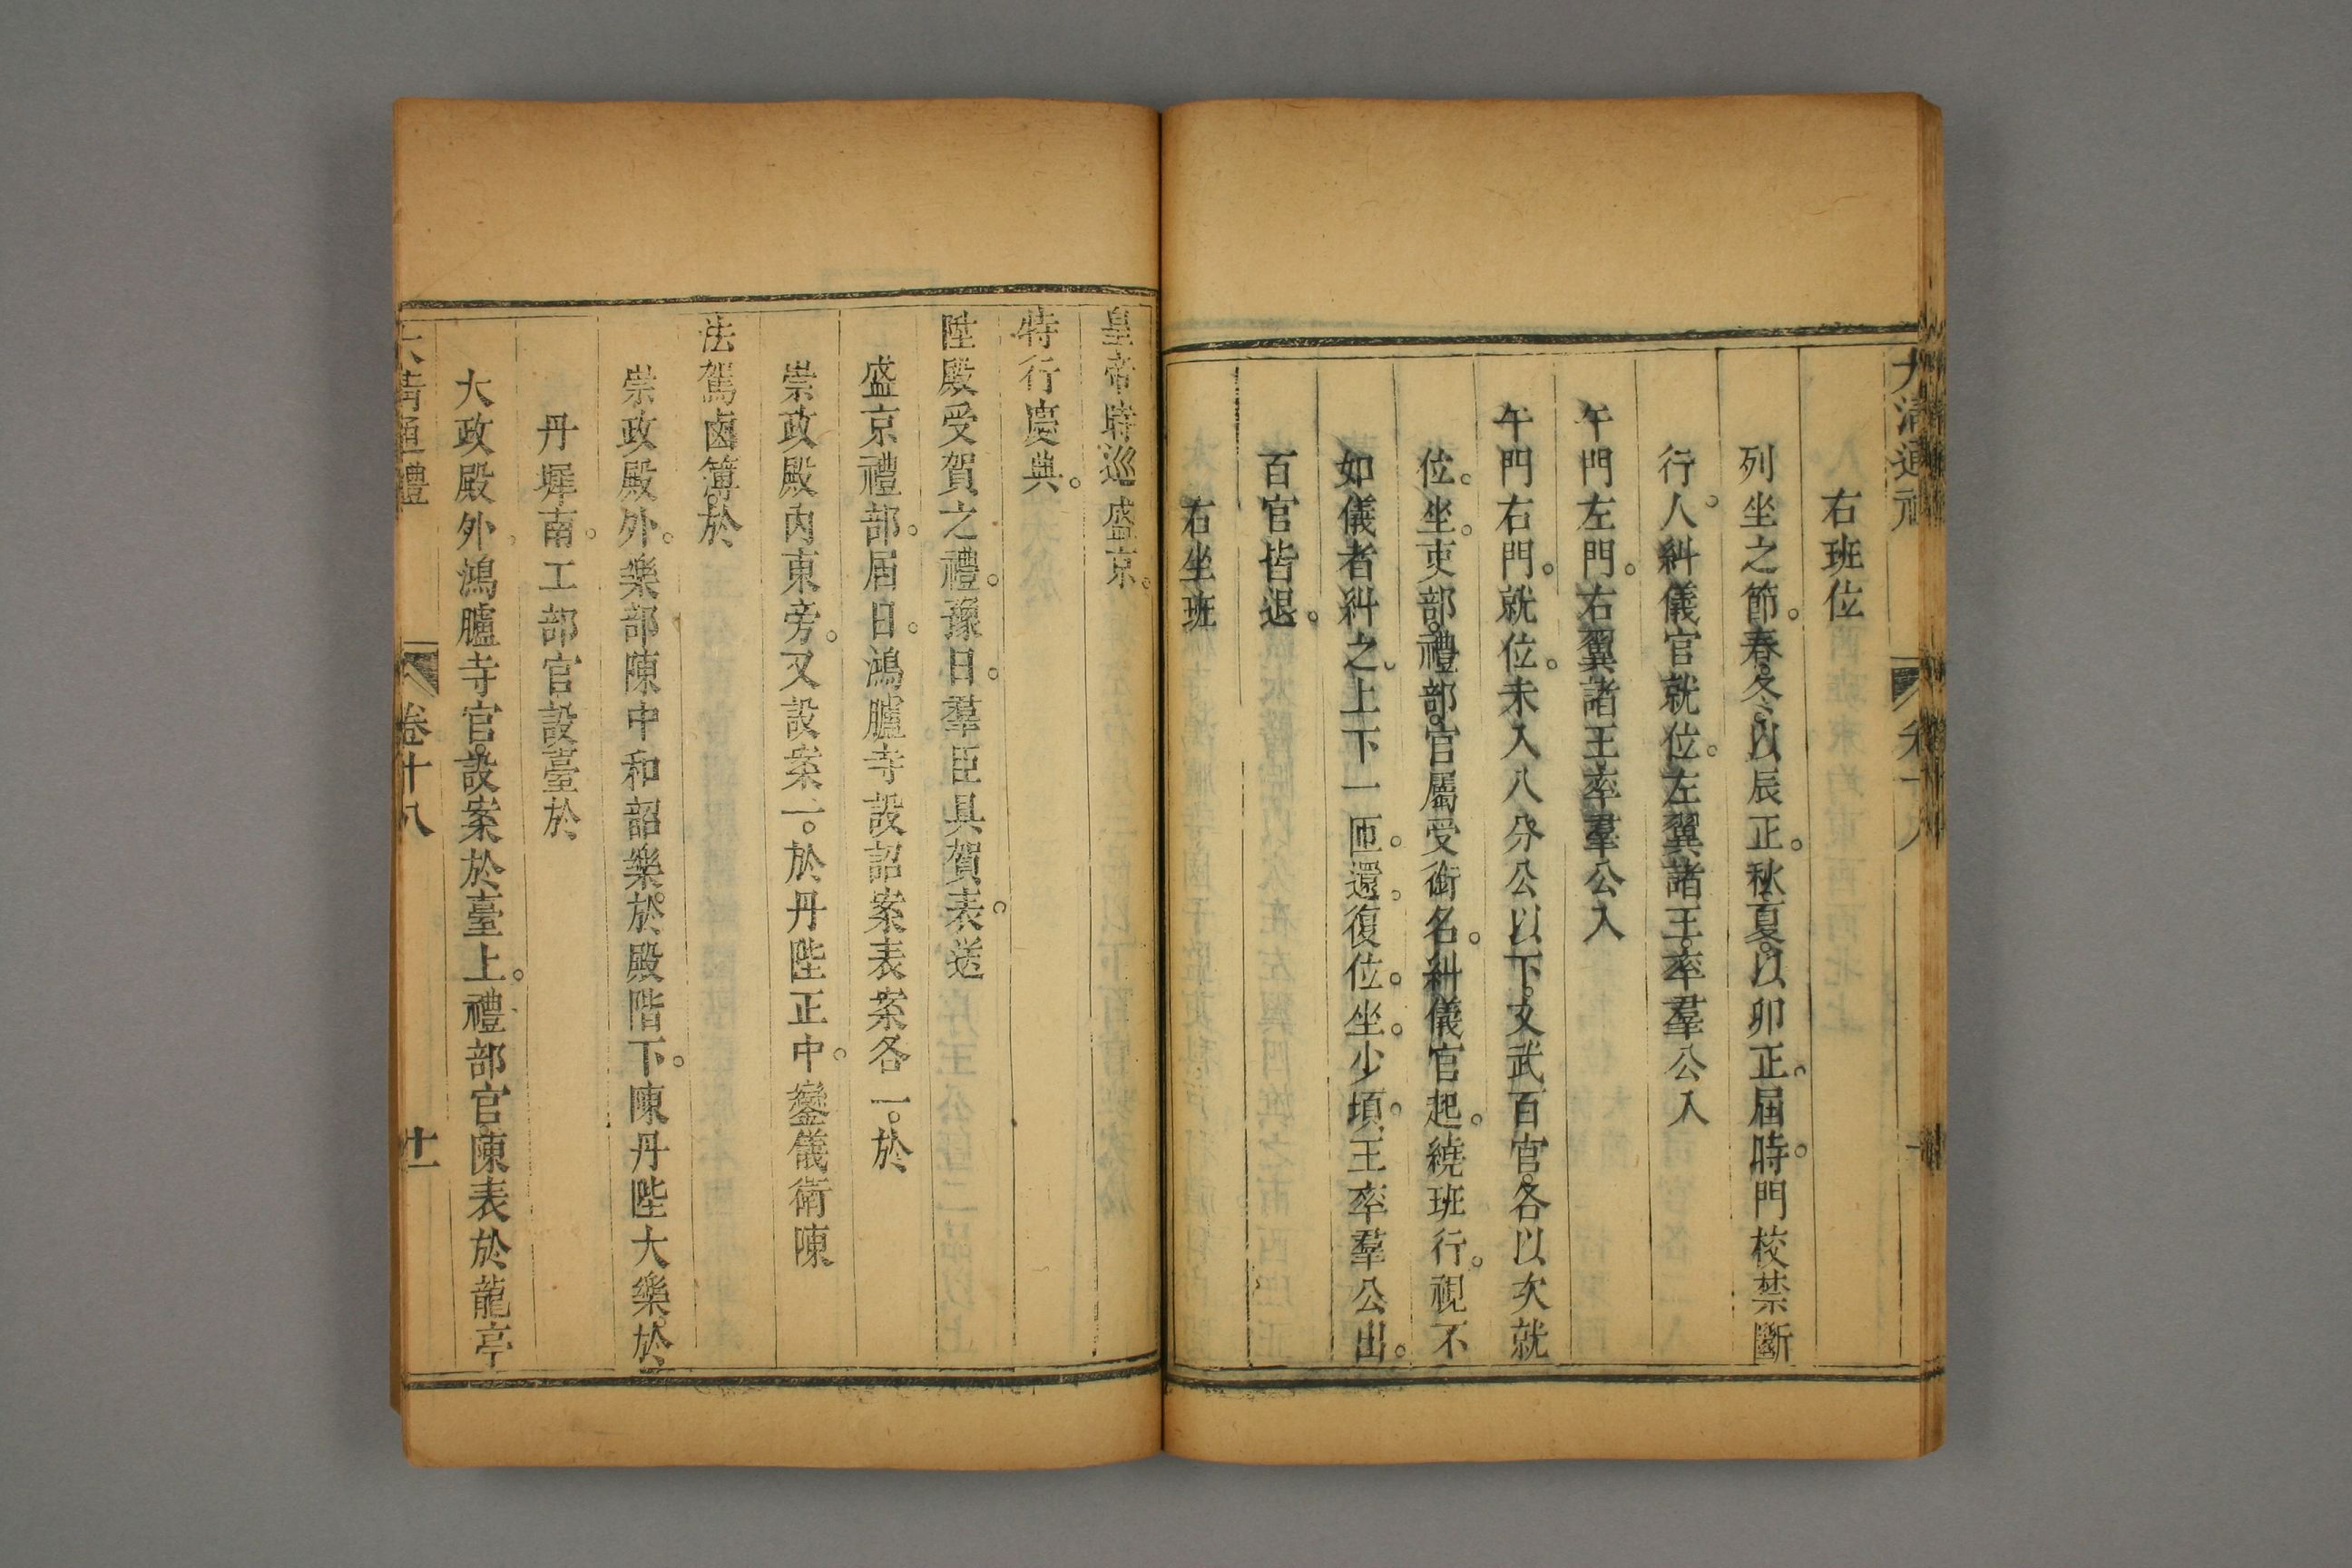 大清通禮 卷十八
右班位
列坐之節。春冬以辰正。秋夏以卯正。屆時。門校禁斷
行人。糾儀官就位。左翼諸王率羣公入
午門左門。右翼諸王率羣公入
午門右門。就位。未入八分公以下。文武百官。各以次就
位。坐。吏部。禮部官屬受銜名。糾儀官起。繞班行。視不
如儀者糾之。上下一匝。還。復位。坐。少頃。王率羣公出。
百官皆退。
右坐班
皇帝時巡盛京。
特行慶典。
陞殿受賀之禮。豫日。羣臣具賀表。送
盛京禮部。屆日。鴻臚寺設詔案表案各一。於
崇政殿內東旁。又設案一。於丹陛正中。鑾儀衛陳
法駕鹵簿。於
崇政殿外。樂部陳中和韶樂。於殿階下。陳丹陛大樂。於
丹墀南。工部官設臺於
大政殿外。鴻臚寺官。設案於臺上。禮部官。陳表於龍亭
大清通禮 卷十八 十一